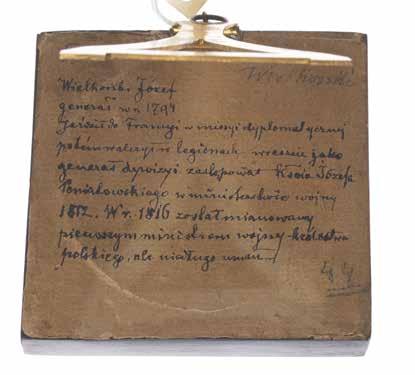 Wielhorski
Wielhorski Józef
generał w r. 1794
jeździł do Francyi w misyi dyplomatycznej
potem walczył w legionach wreszcie jako
generał dywizyi zastępował Księcia Józefa
Poniatowskiego w ministerstwie wojny
1812. W r. 1816 został mianowany
pierwszym ministrem wojny królestwa
polskiego, ale niedługo umarł